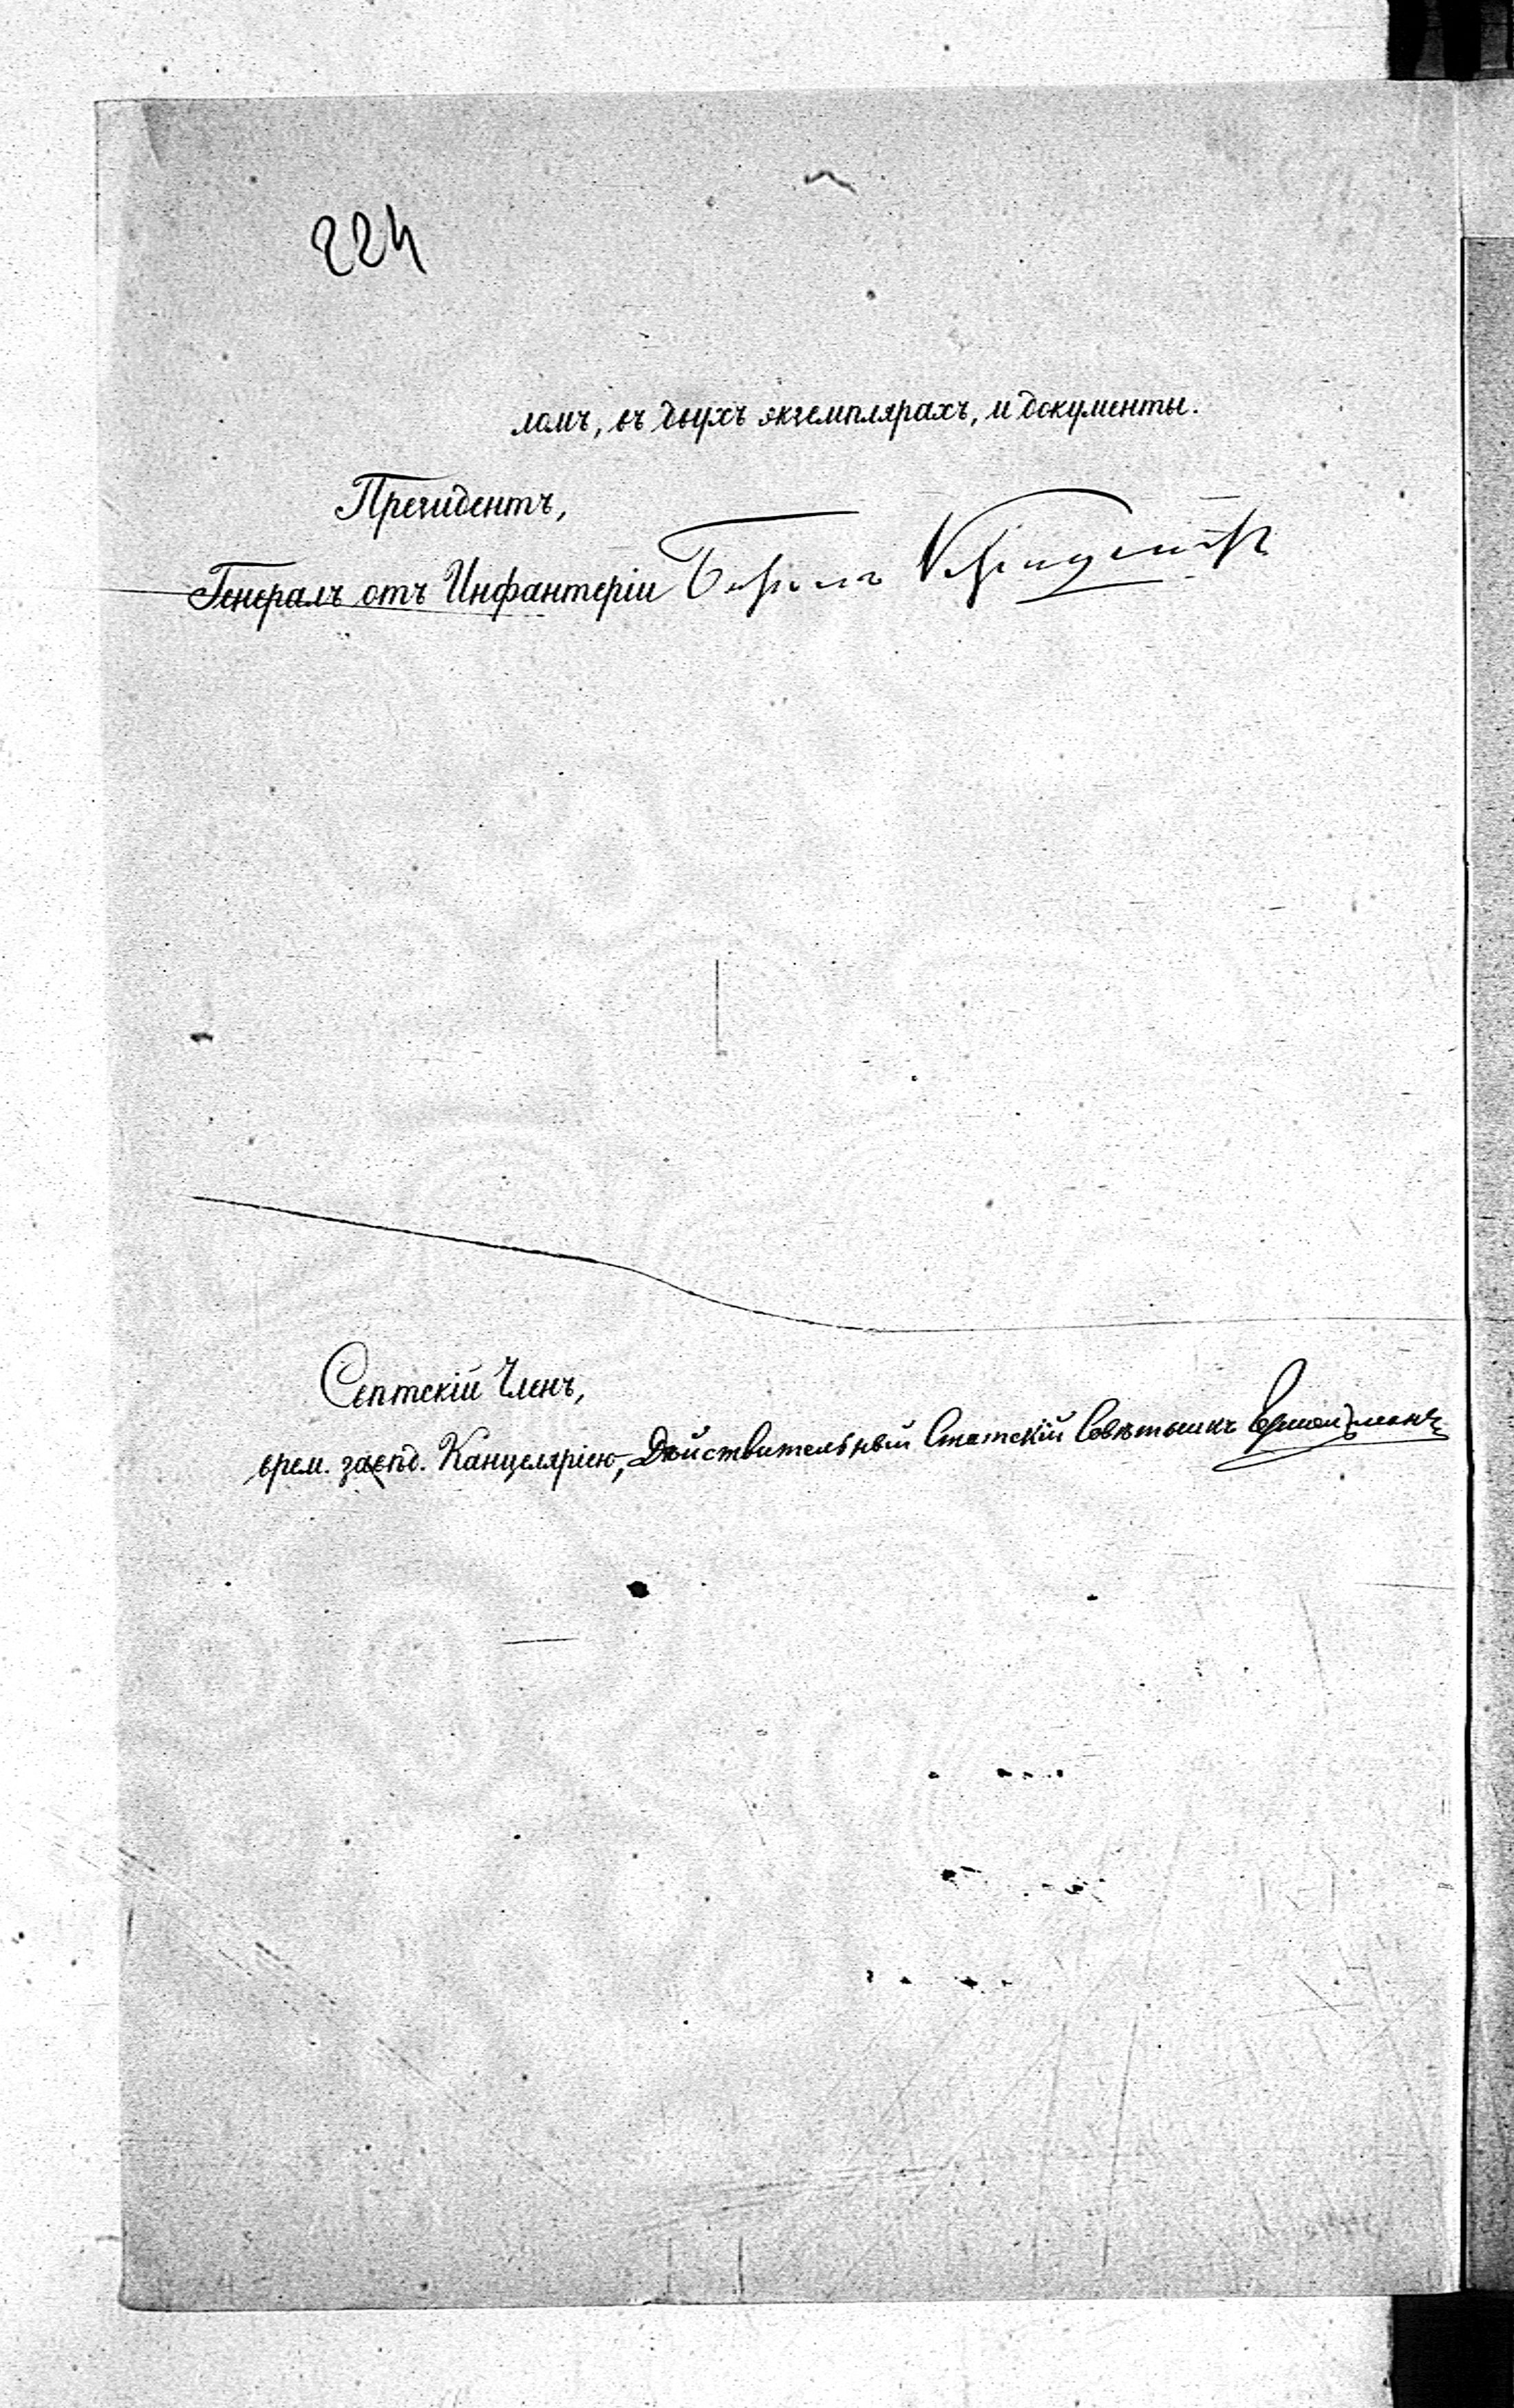 224
ломъ, въ двухъ экземплярахъ, и документы.
Президентъ,
Генералъ отъ Инфантеріи Баронъ
Свѣтскій Членъ,
врем. завѣд. Канцеляріею, Дѣйствительный Статскій Совѣтникъ